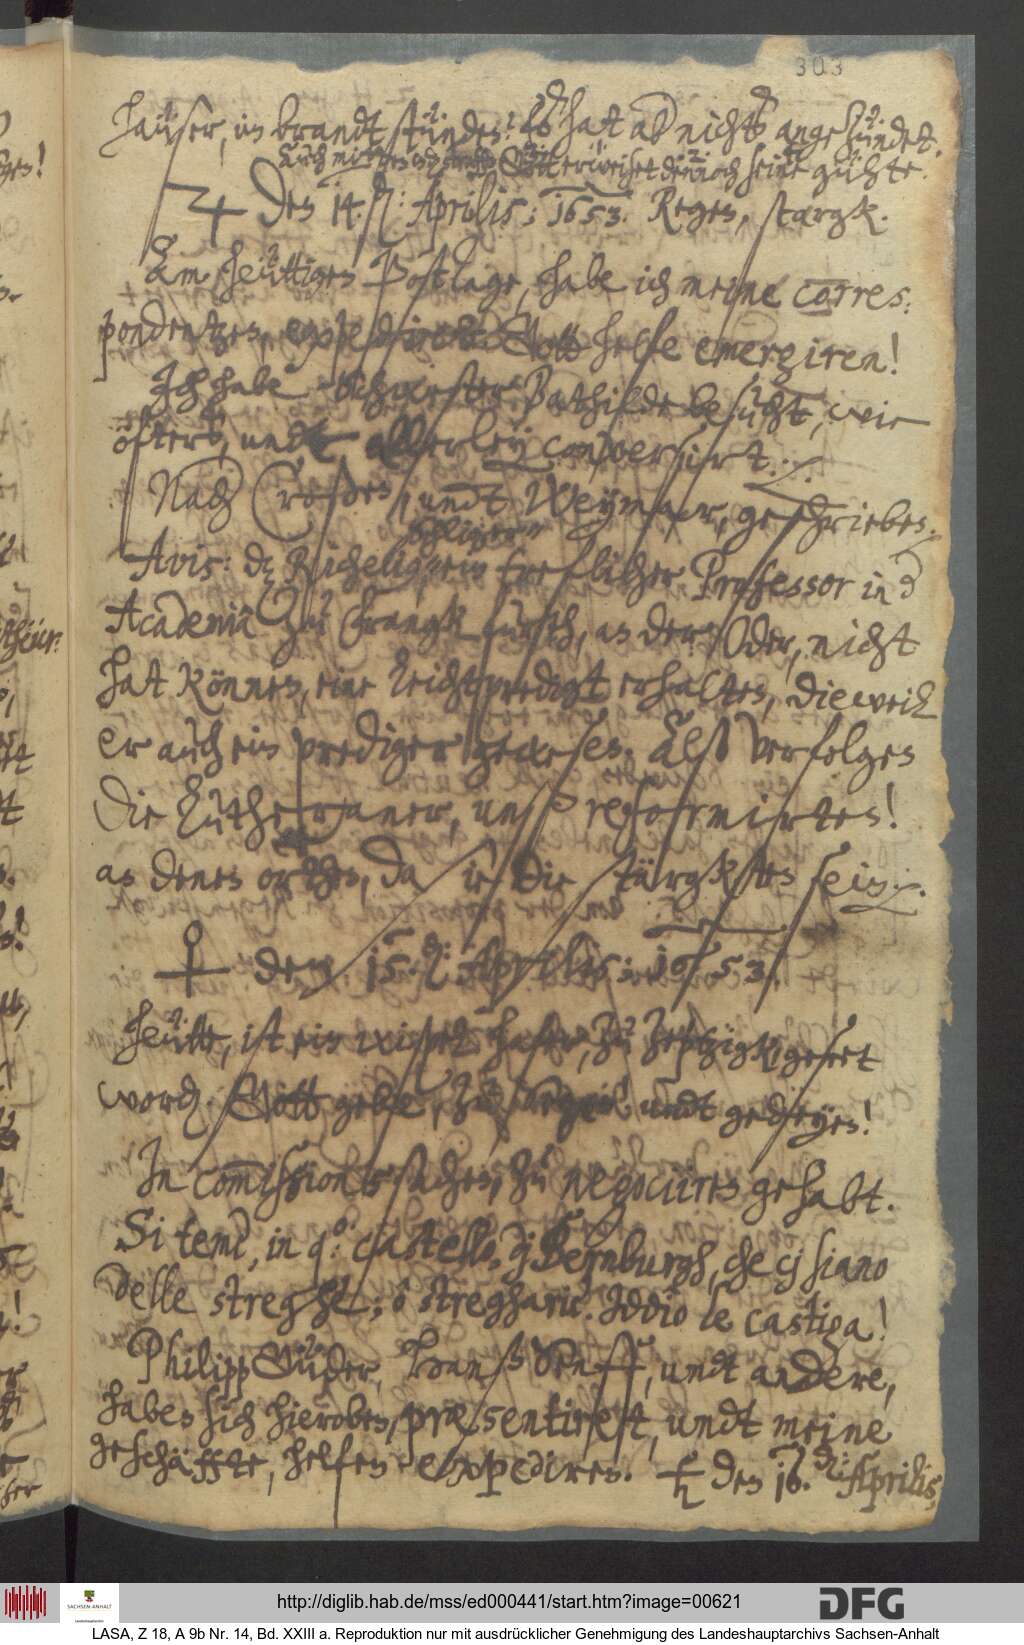 303
häuser, in brandt stünden! Es hat aber nichts angezündet.
Auch mitten
Gott erweiset dennoch seine gühte.
♃ den 14. d: Aprilis: 1653. Regen, starck.
Am heüttigen Postlage, habe ich meine corres:
pondentzen, expedirt. Gott helfe emergiren!
Ich habe Schwester Bathilde besucht, wie
öfters, undt allerley conversirt ./.
Nach Croßen, undt Weymar, geschrieben.
Schlesier
Avis: daß Richelius ein treflicher Professor in der
Academia zu Franckfurth, an der Oder, nicht
hat können, eine Leichpredigt erhalten, dieweil
er auch ein prediger gewesen. Also verfolgen
die Lutheraner, unß reformirten!
an denen orthen, da sie die stärcksten sein ./.
♀ den 15. d: Aprilis: 1653.
Heütte, ist ein wispel hafer, zu Zeptzigk geseet
word. Gott gebe, zu segen undt gedeyen!
In commissionssachen, zu negociiren gehabt.
Si teme, in q.o castello, dj Bernburgh, che cj siano
delle streghe, ô stregharie. Iddio le castiga!
Philipp Güder, Hanß Senff, undt andere,
haben sich hieroben, præsentirt, undt meine
geschäffte, helfen expediren. ♄ den 16. d: Aprilis,
http://diglib.hab.de/mss/ed000441/start.htm?image=00621
SACHSEN-ANHALT
DFG
LASA, Z 18, A 9b Nr. 14, Bd. XXIII a. Reproduktion nur mit ausdrücklicher Genehmigung des Landeshauptarchivs Sachsen-Anhalt